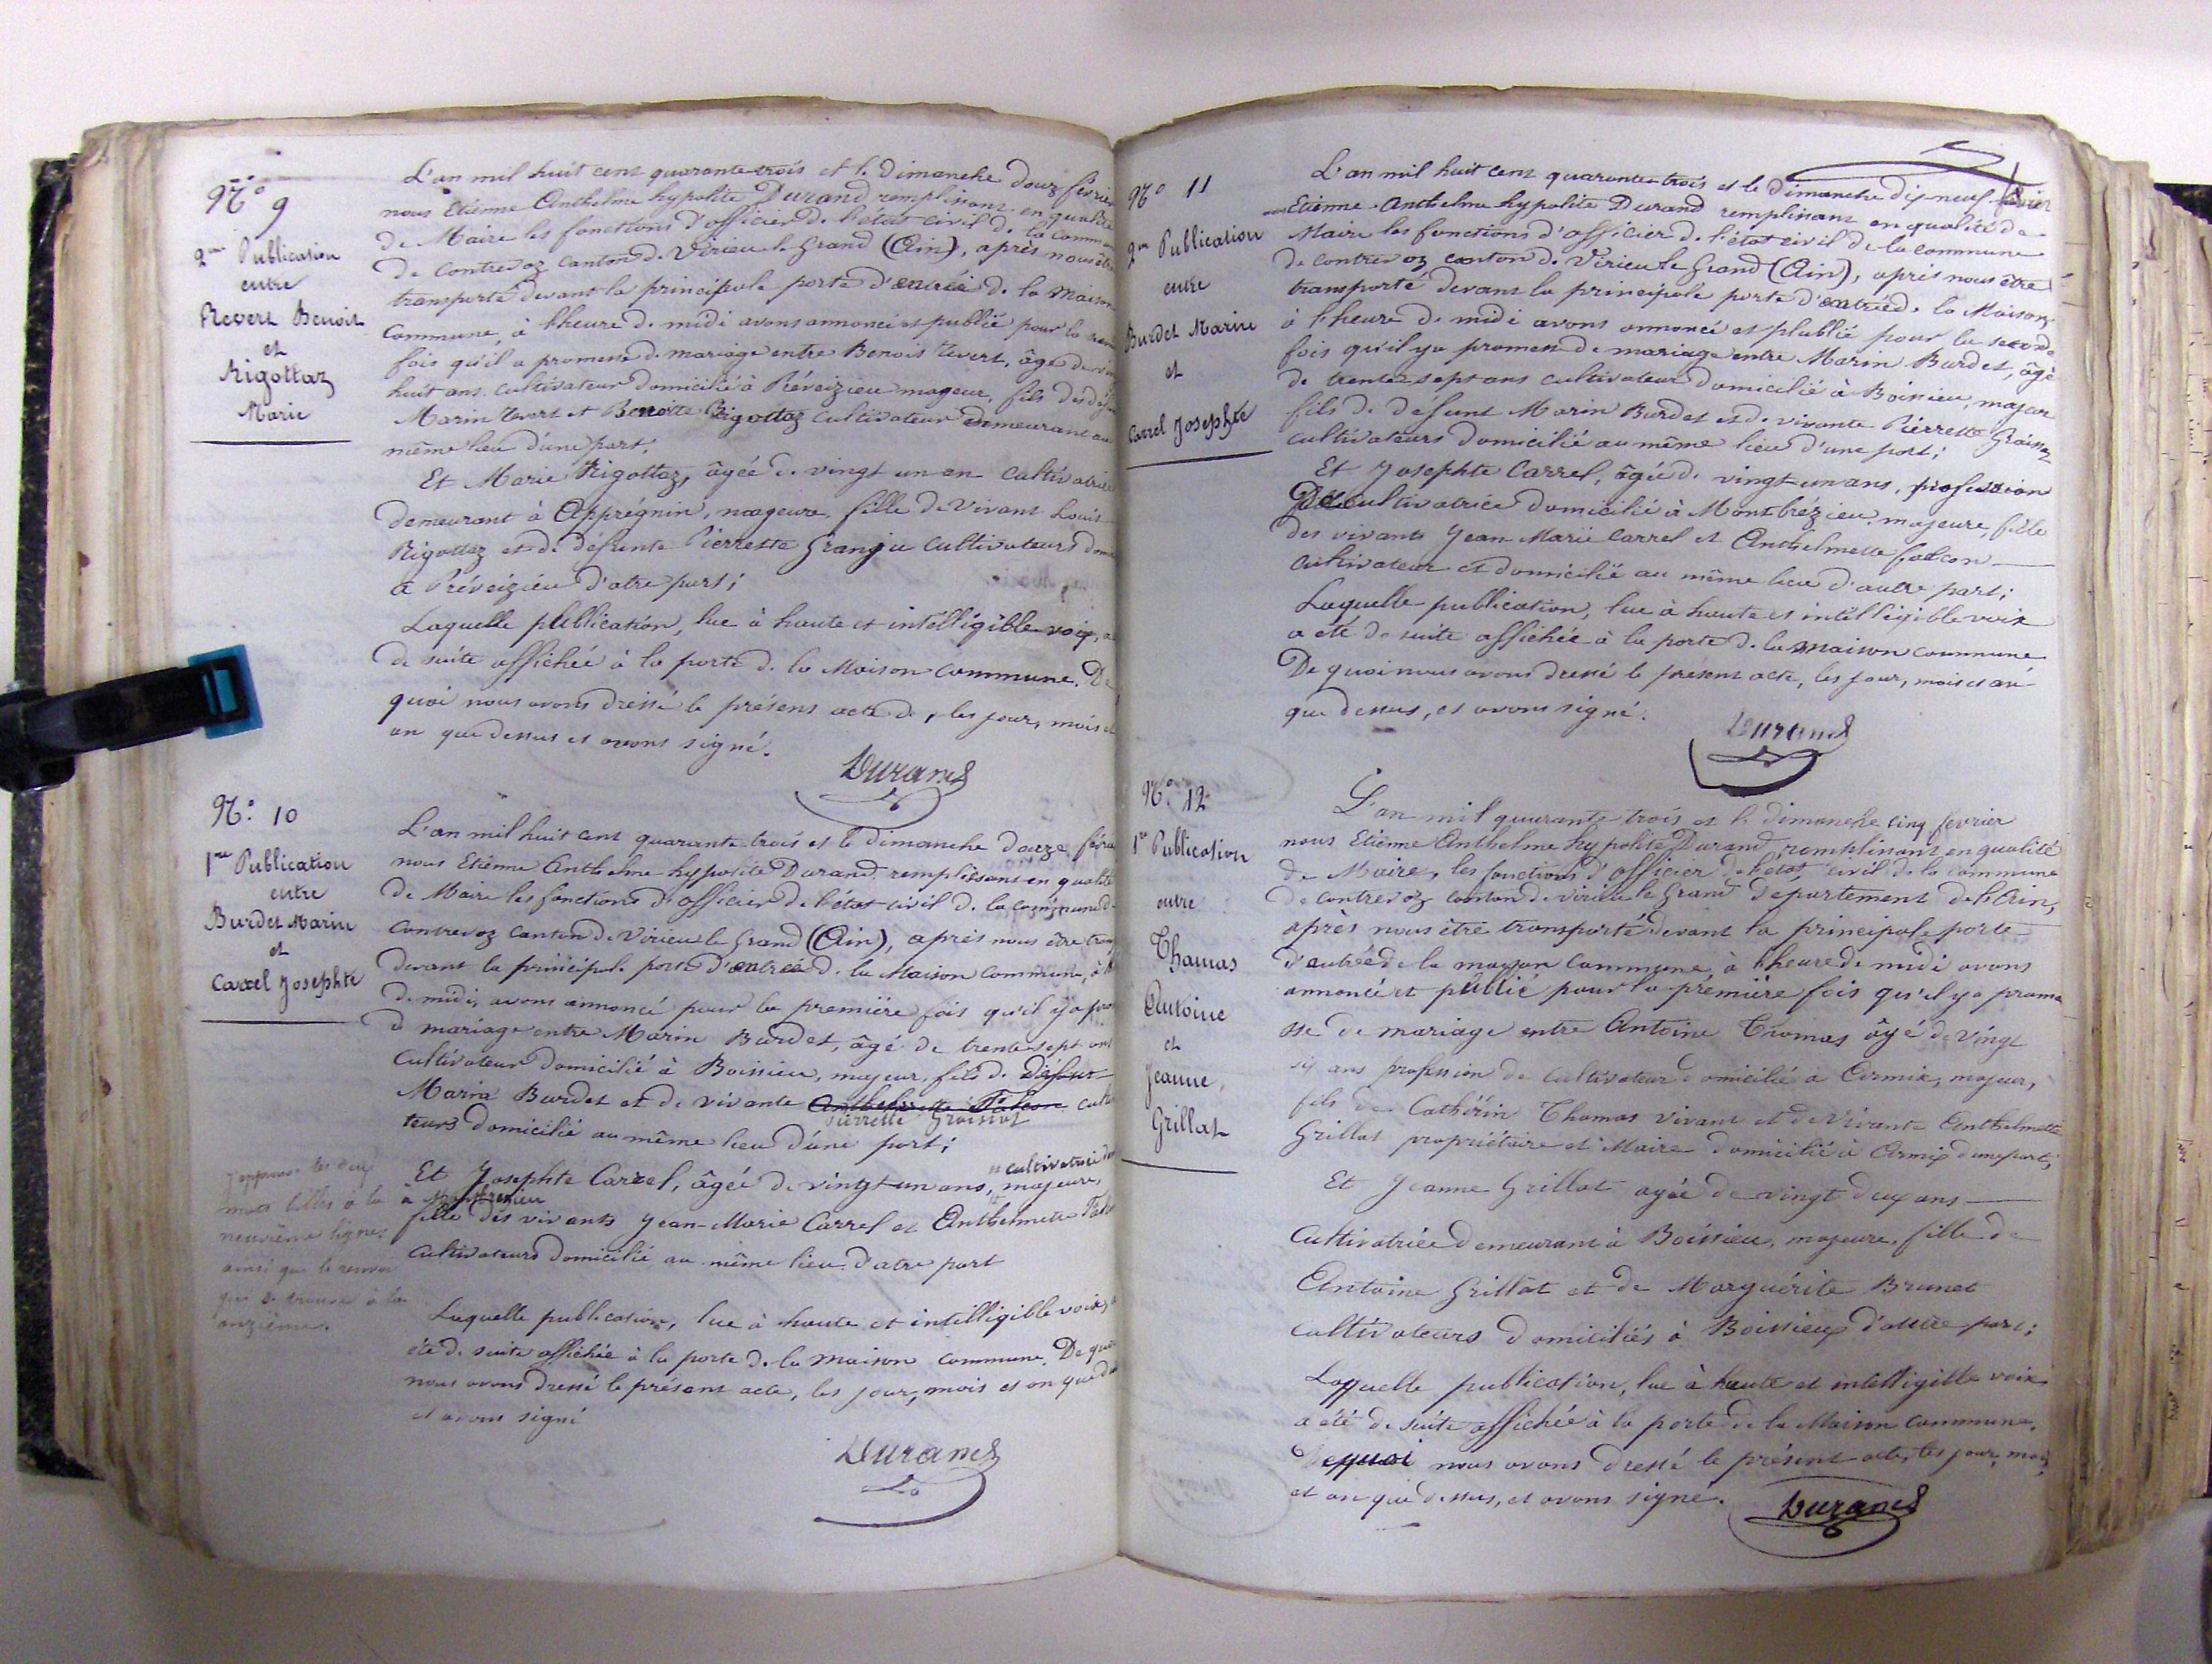 N.° 9
2me Publication
entre
Revert Benoit
et
Rigottaz
Marie
L'an mil huit cent quarante trois et le Dimanche douz février
nous Etienne Anthelme hypolite Durand remplissant en qualité
de Maire les fonctions d'officier de l'état civil de la commune
de Contrevoz canton de Virieu le Grand (Ain), après nous être
transporté devant la principale porte d'entrée de la Maison
Commune, à l'heure de midi avons annoncé et publié pour la
fois qu'il a promesse de mariage entre Benoit Revert, âgé de
huit ans cultivateur domicilié à Préveizieu mageur, fils des
Marin Revert et Benoite Rigottaz cultivateur demeurant au
même lieu d'une part;
Et Marie Rigottaz, âgée de vingt un an cultivatrice
demeurant à Apprégnin, mageure, fille de vivant Louis
Rigottaz et de défunte Pierrette Granju cultivateurs
à Préveizieu d'atre part;
Laquelle publication, lue à haute et intelligible voix, a
de suite affichée à la porte de la Maison commune. De
quoi nous avons dressé le présent acte de, les jour, mois et
an que dessus et avons signé.
Durand
N.° 10
1re Publication
entre
Burdet Marin
et
Carrel Josephte
L'an mil huit cent quarante trois et le Dimanche douze
nous Etienne Anthelme hypolite Durand remplissant en qualité
de Maire les fonctions d'officier de l'état civil de la commune de
Contrevoz canton de Virieu le Grand (Ain), après nous être
devant la principale porte d'entrée de la Maison commune, à
de midi, avons annoncé pour la première fois qu'il y a
d mariage entre Marin Burdet, âgé de trente sept ans
cultivateur domicilié à Boissieu, majeur, fils de défunt
Marin Burdet et de vivante Anthelmette Falcon
Pierrette Groinoz
teurs domicilié au même lieu d'une part;
Et Josephte Carrel, âgée de vingt un ans, majeure,
cultivatrice
à Montbrézieu
fille des vivants Jean-Marie Carrel et Anthelmette
cultivateurs domicilié au même lieu d'atre part
J'approuve les deux
mots biffés à la
neuvième lignes
ainsi que le renvoi
qui se trouve à la
onzième.
Laquelle publication, lue à haute et intelligible voix, a
été de suite affichée à la porte de la maison commune. De quoi
nous avons dressé le présent acte, les jour, mois et an que
et avons signé
Durand
N.° 11
2me Publication
entre
Burdet Marin
et
Carrel Josephte
L'an mil huit cent quarante trois et le Dimanche dix neuf février
nous Etienne Anthelme hypolite Durand remplissant en qualité de
Maire les fonctions d'officier de l'état civil de la commune
de Contrevoz canton de Virieu le Grand (Ain), après nous être
transporté devant la principale porte d'entrée de la Maison
à l'heure de midi avons annoncé et plublié pour la seconde
fois qu'il y a promesse de mariage entre Marin Burdet, âgé
de trente sept ans cultivateur domicilié à Boissieu, majeur
fils de défunt Marin Burdet et de vivante Pierrette Groinoz
cultivateurs domicilié au même lieu d'une part;
Et Josephte Carrel, âgée de vingt un ans, profession
De cultivatrice domicilié à Montbrézieu, majeure, fille
des vivants Jean Marie Carrel et Anthelmette falcon
cultivateur et domicilié au même lieu d'autre part;
Laquelle publication, lue à haute et intelligible voix
a été de suite affichée à la porte de la maison commune
De quoi nous avons dressé le présent acte, les jour, mois et an
que dessus, et avons signé.
Durand
N.° 12
1re Publication
entre
Thomas
Antoine
et
Jeanne
Grillat
L'an mil quarante trois et le dimanche cinq février
nous Etienne Anthelme hypolite Durand, remplissant en qualité
de Maire, les fonctions d'officier de l'état civil de la commune
de contrevoz canton de virieu le Grand Departement de l'Ain,
après nous être transporté devant la principale porte
d'entrée de la mayson commune, à l'heure de midi avons
annoncé et publié pour la première fois qu'il y a prome
sse de mariage entre Antoine Thomas âgé de vingt
six ans profession de cultivateur domicilié à Armix, majeur,
fils de Cathérin Thomas vivant et de vivante Anthelmette
Grillat propriétaire et Maire domicilié à Armix d'une part;
Et Jeanne Grillat agée de vingt deux ans
Cultivatrice demeurant à Boissieu, majeure, fille de
Antoine Grillat et de Marguérite Brunet
cultivateurs domiciliés à Boissieux d'autre part;
Laquelle publication, lue à haute et intelligible voix
a été de suite affichée à la porte de la Maison commune.
Dequoi nous avons dressé le présent acte, les jour, mois,
et an que dessus, et avons signé.
Durand